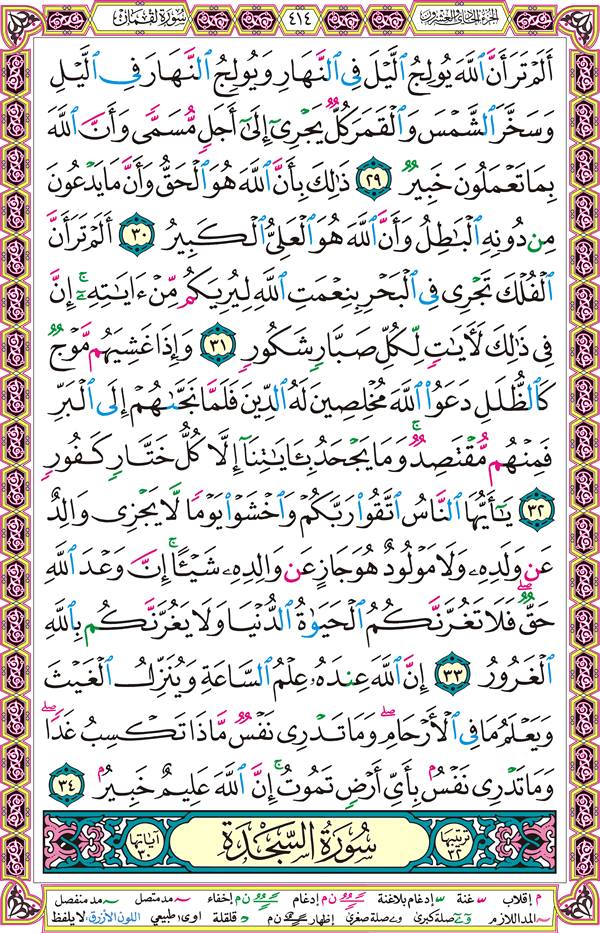 الجزء الحادي والعشرون
٤١٤
سورة لقمان
أَلَمْ تَرَ أَنَّ ٱللَّهَ يُولِجُ ٱلَّيْلَ فِى ٱلنَّهَارِ وَيُولِجُ ٱلنَّهَارَ فِى ٱلَّيْلِ
وَسَخَّرَ ٱلشَّمْسَ وَٱلْقَمَرَ كُلٌّ يَجْرِىٓ إِلَىٰٓ أَجَلٍ مُّسَمًّى وَأَنَّ ٱللَّهَ
بِمَا تَعْمَلُونَ خَبِيرٌ ٢٩ ذَٰلِكَ بِأَنَّ ٱللَّهَ هُوَ ٱلْحَقُّ وَأَنَّ مَا يَدْعُونَ
مِن دُونِهِ ٱلْبَٰطِلُ وَأَنَّ ٱللَّهَ هُوَ ٱلْعَلِىُّ ٱلْكَبِيرُ ٣٠ أَلَمْ تَرَ أَنَّ
ٱلْفُلْكَ تَجْرِى فِى ٱلْبَحْرِ بِنِعْمَتِ ٱللَّهِ لِيُرِيَكُم مِّنْ ءَايَٰتِهِۦٓ ۚ إِنَّ
فِى ذَٰلِكَ لَءَايَٰتٍ لِّكُلِّ صَبَّارٍ شَكُورٍ ٣١ وَإِذَا غَشِيَهُم مَّوْجٌ
كَٱلظُّلَلِ دَعَوُا۟ ٱللَّهَ مُخْلِصِينَ لَهُ ٱلدِّينَ فَلَمَّا نَجَّىٰهُمْ إِلَى ٱلْبَرِّ
فَمِنْهُم مُّقْتَصِدٌ ۚ وَمَا يَجْحَدُ بِـَٔايَٰتِنَآ إِلَّا كُلُّ خَتَّارٍ كَفُورٍ
٣٢ يَٰٓأَيُّهَا ٱلنَّاسُ ٱتَّقُوا۟ رَبَّكُمْ وَٱخْشَوْا۟ يَوْمًا لَّا يَجْزِى وَالِدٌ
عَن وَلَدِهِۦ وَلَا مَوْلُودٌ هُوَ جَازٍ عَن وَالِدِهِۦ شَيْـًٔا ۚ إِنَّ وَعْدَ ٱللَّهِ
حَقٌّ ۖ فَلَا تَغُرَّنَّكُمُ ٱلْحَيَوٰةُ ٱلدُّنْيَا وَلَا يَغُرَّنَّكُم بِٱللَّهِ
ٱلْغَرُورُ ٣٣ إِنَّ ٱللَّهَ عِندَهُۥ عِلْمُ ٱلسَّاعَةِ وَيُنَزِّلُ ٱلْغَيْثَ
وَيَعْلَمُ مَا فِى ٱلْأَرْحَامِ ۖ وَمَا تَدْرِى نَفْسٌ مَّاذَا تَكْسِبُ غَدًا ۖ
وَمَا تَدْرِى نَفْسٌۢ بِأَىِّ أَرْضٍ تَمُوتُ ۚ إِنَّ ٱللَّهَ عَلِيمٌ خَبِيرٌۢ ٣٤
ترتيبها ٣٢
سُورَةُ السَّجْدَةِ
آياتها ٣٠
م إقلاب غنة إدغام بلاغنة ن م إدغام إخفاء مد متصل مد منفصل
المد اللازم صلة كبرى صلة صغرى إظهار ن م قلقلة اوى طبيعي اللون الأزرق: لا يلفظ